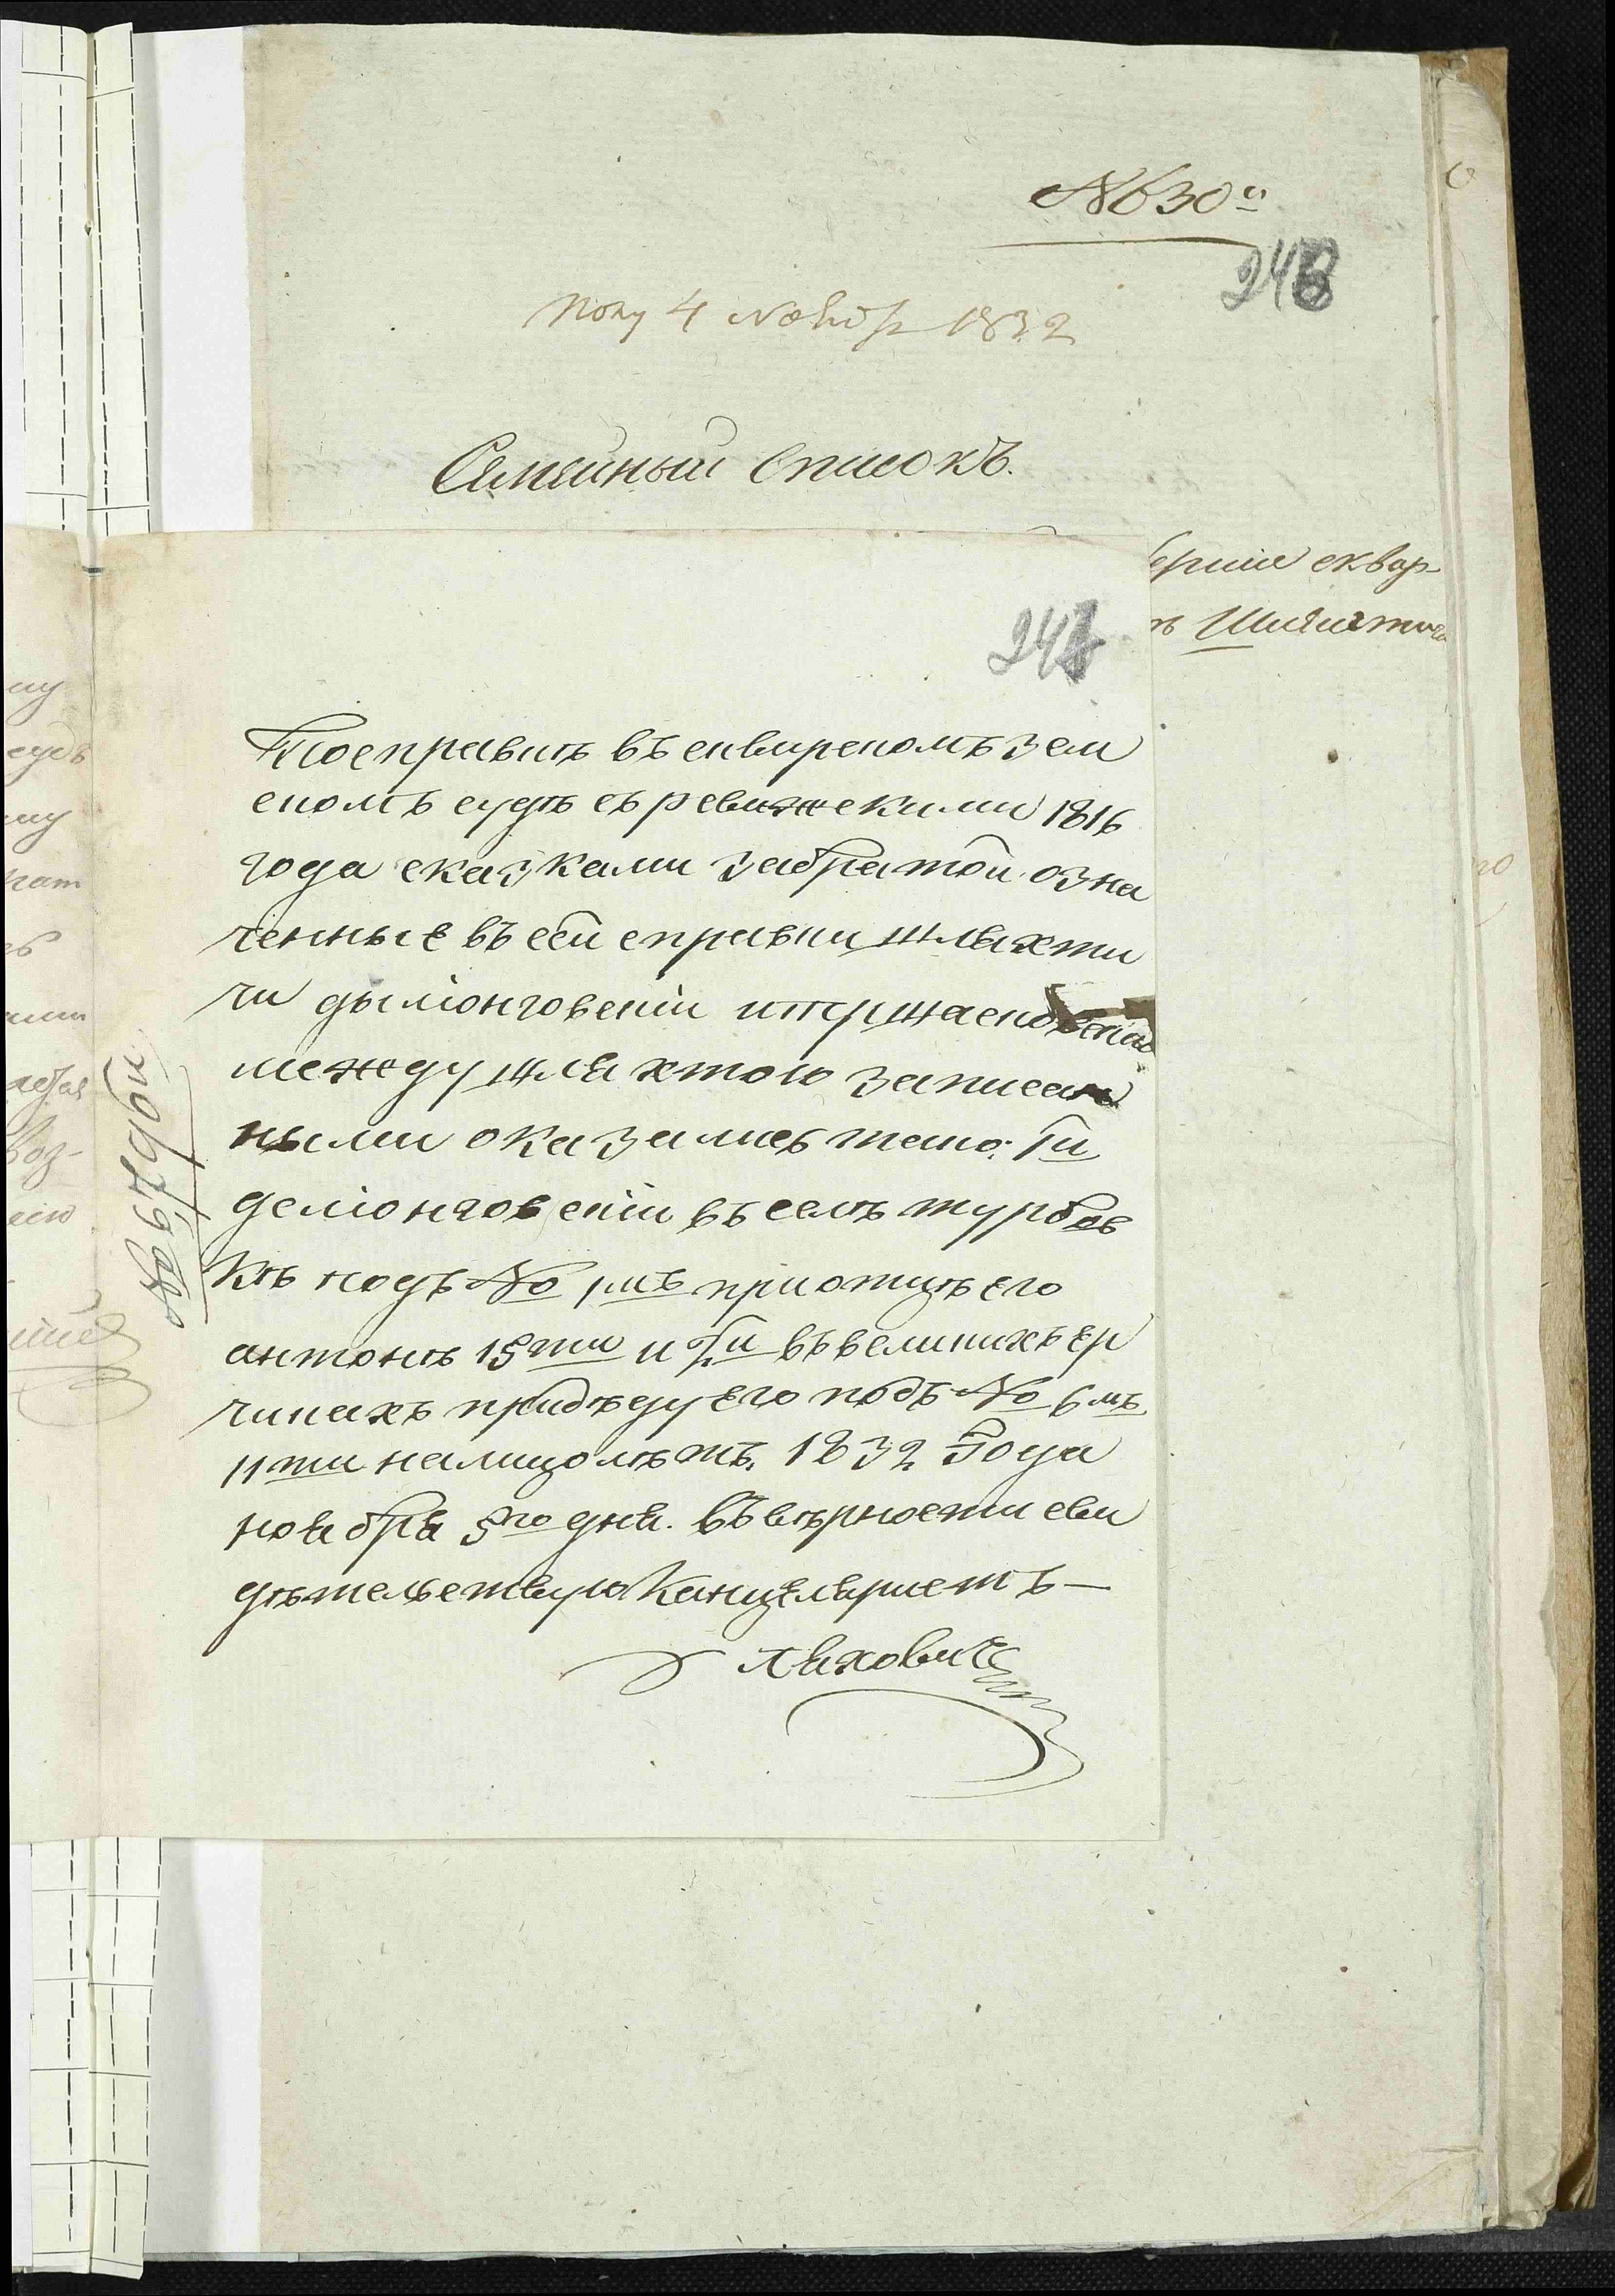 № 630й
248
Полу 4 Ноября 1832
Семейный Списокъ.
сквир-
Шляхтича
247
По справкѣ въ сквирскомъ зем
скомъ судѣ съ ревижскими 1816
года сказками забратой озна
ченные въ сей справки шляхти
чи
между шляхтою записан
ными оказались тамо:
въ селѣ турбов
кѣ подъ № 1мъ при отцѣ его
антонѣ 15ти и въ великихъ ер
чикахъ при дѣду его подъ № 6мъ
11ти на лицо лѣтъ. 1832 Года
ноября 5го дня. въ вѣрности сви
дѣтельствую Канцеляристъ —
Ляховичъ
№ 679й